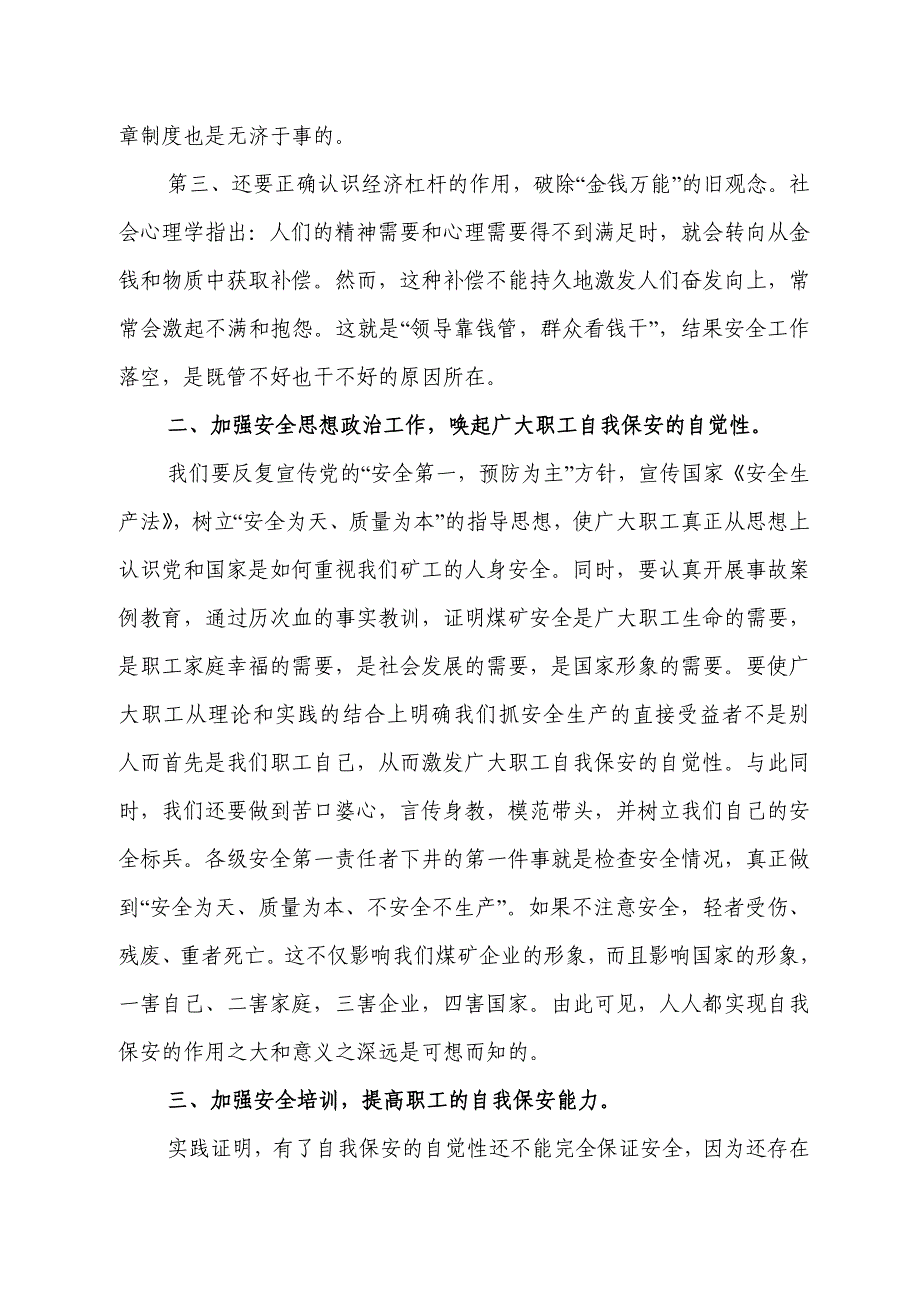 章制度也是无济于事的。
第三、还要正确认识经济杠杆的作用，破除“金钱万能”的旧观念。社
会心理学指出：人们的精神需要和心理需要得不到满足时，就会转向从金
钱和物质中获取补偿。然而，这种补偿不能持久地激发人们奋发向上，常
常会激起不满和抱怨。这就是“领导靠钱管，群众看钱干”，结果安全工作
落空，是既管不好也干不好的原因所在。
二、加强安全思想政治工作，唤起广大职工自我保安的自觉性。
我们要反复宣传党的“安全第一，预防为主”方针，宣传国家《安全生
产法》，树立“安全为天、质量为本”的指导思想，使广大职工真正从思想上
认识党和国家是如何重视我们矿工的人身安全。同时，要认真开展事故案
例教育，通过历次血的事实教训，证明煤矿安全是广大职工生命的需要，
是职工家庭幸福的需要，是社会发展的需要，是国家形象的需要。要使广
大职工从理论和实践的结合上明确我们抓安全生产的直接受益者不是别
人而首先是我们职工自己，从而激发广大职工自我保安的自觉性。与此同
时，我们还要做到苦口婆心，言传身教，模范带头，并树立我们自己的安
全标兵。各级安全第一责任者下井的第一件事就是检查安全情况，真正做
到“安全为天、质量为本、不安全不生产”。如果不注意安全，轻者受伤、
残废、重者死亡。这不仅影响我们煤矿企业的形象，而且影响国家的形象，
一害自己、二害家庭，三害企业，四害国家。由此可见，人人都实现自我
保安的作用之大和意义之深远是可想而知的。
三、加强安全培训，提高职工的自我保安能力。
实践证明，有了自我保安的自觉性还不能完全保证安全，因为还存在